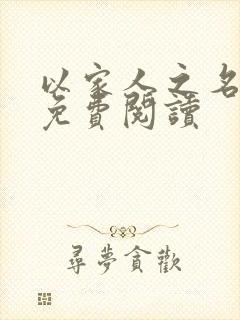 以家人之名
免費閱讀
尋夢貪歡